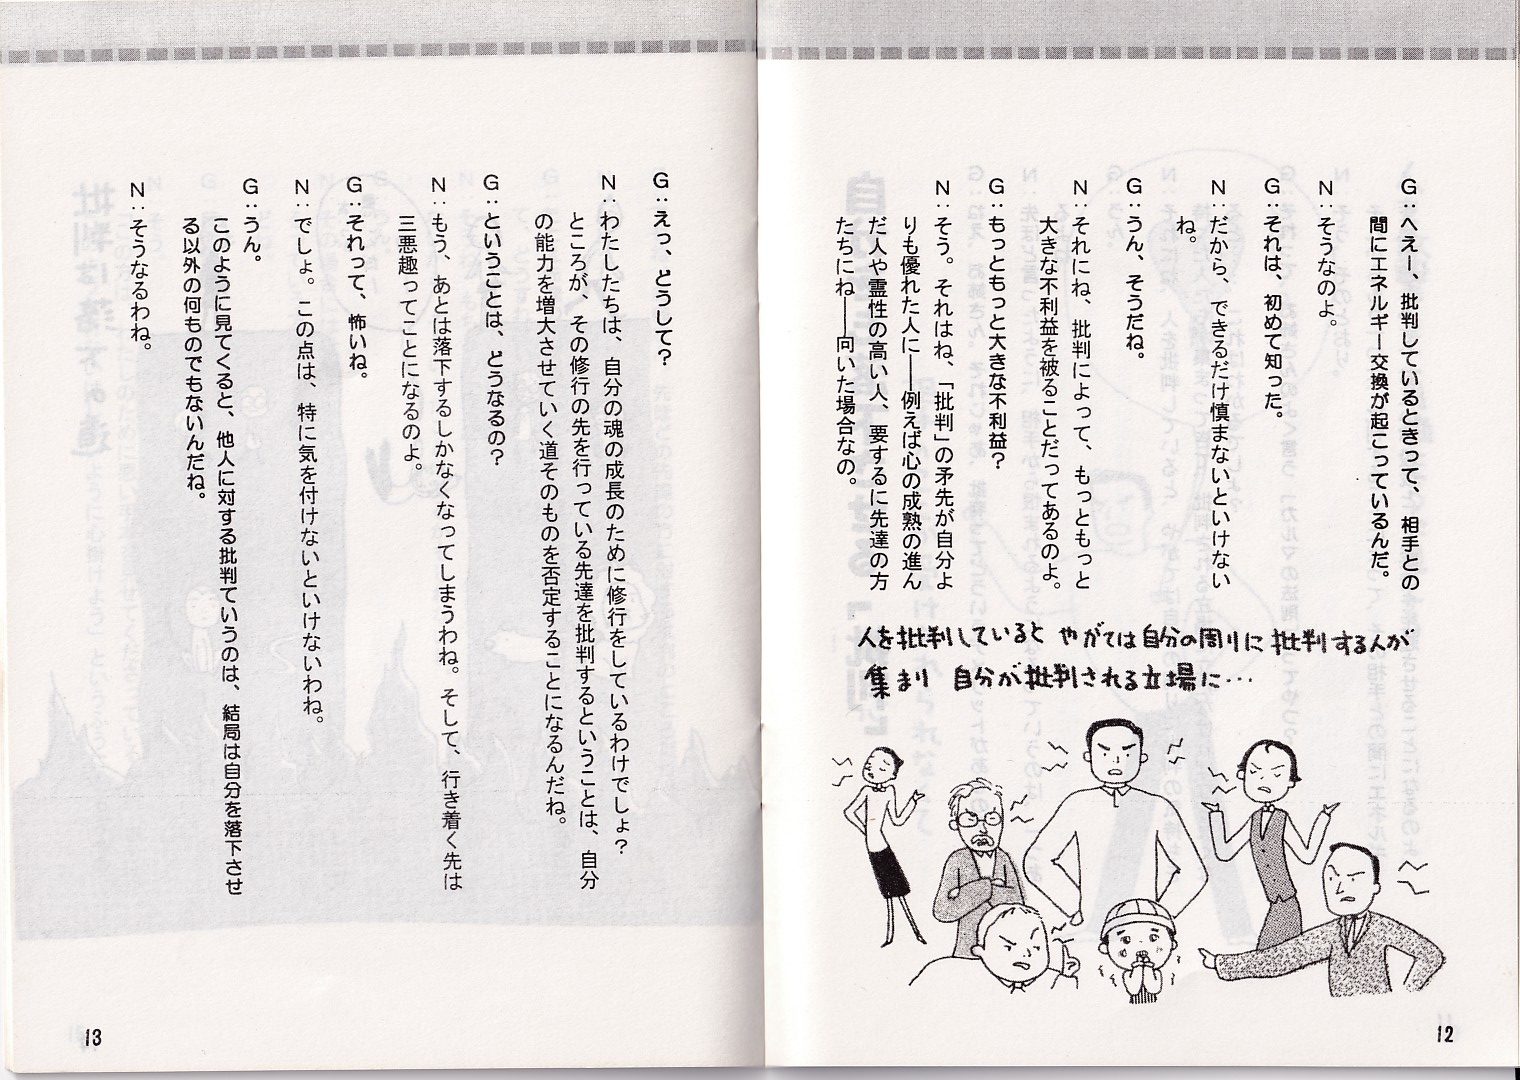 G：へえー、批判しているときって、相手との
間にエネルギー交換が起こっているんだ。
N：そうなのよ。
G：それは、初めて知った。
N：だから、できるだけ慎まないといけない
ね。
G：うん、そうだね。
N：それにね、批判によって、もっともっと
大きな不利益を被ることだってあるのよ。
G：もっともっと大きな不利益？
N：そう。それはね、「批判」の矛先が自分よ
りも優れた人に――例えば心の成熟の進ん
だ人や霊性の高い人、要するに先達の方
たちにね――向いた場合なの。
人を批判していると やがては自分の周りに批判する人が
集まり 自分が批判される立場に…
12
G：えっ、どうして？
N：わたしたちは、自分の魂の成長のために修行をしているわけでしょ？
ところが、その修行の先を行っている先達を批判するということは、自分
の能力を増大させていく道そのものを否定することになるんだね。
G：ということは、どうなるの？
N：もう、あとは落下するしかなくなってしまうわね。そして、行き着く先は
三悪趣ってことになるのよ。
G：それって、怖いね。
N：でしょ。この点は、特に気を付けないといけないわね。
G：うん。
このように見てくると、他人に対する批判ていうのは、結局は自分を落下させ
る以外の何ものでもないんだね。
N：そうなるわね。
13